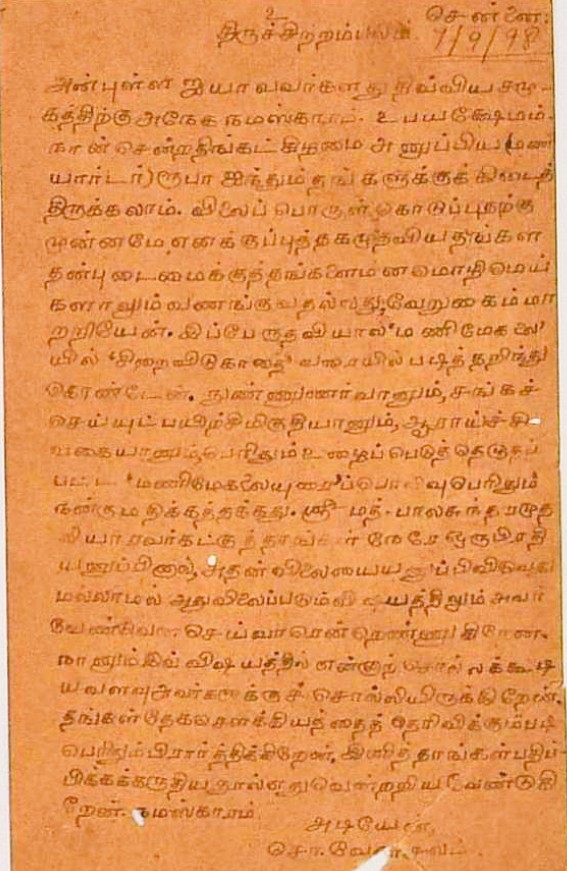 உ
சென்னை:
திருச்சிற்றம்பலம். 7/9/98
அன்புள்ள ஐயா வவர்களது திவ்விய சமு-
கத்திற்கு அநேக நமஸ்காரம். உபய க்ஷேமம்.
நான் சென்றதிங்கட் கிழமை அனுப்பிய (மணி
யார்டர்) ரூபா ஐந்தும் தங்களுக்குக் கிடைத்
திருக்கலாம். விலைப் பொருள் கொடுப்பதற்கு
முன்னமே எனக்குப்புத்தகமுதவிய தங்கள
தன்புடைமைக்குத்தங்களைமனமொழிமெய்
களாலும் வணங்குவதல்லது, வேறுகைம்மா
றறியேன். இப்பேருதவியால் 'மணிமேகலை'
யில் 'சிறைவிடுகாதை' வரையில் படித்தறிந்து
கொண்டேன். நுண்ணுணர்வானும், சங்கச்
செய்யுட்பயிற்சிமிகுதியானும், ஆராய்ச்சி
வகையானும், பெரிதும் உழைப்பெடுத்தெழுதப்
பட்ட 'மணிமேகலையுரை'ப்பொலிவு பெரிதும்
நன்குமதிக்கத்தக்கது. ஸ்ரீமத்-பாலசுந்தரமுத
லியாரவர்கட்குத்தாங்கள் நேரே ஒருபிரதி
யனுப்பினால், அதன்விலையையனுப்பிவிடுவது
மல்லாமல் அதுவிலைப்படும்விஷயத்திலும் அவர்
வேண்டுவன செய்வாரென்றெண்ணுகிறேன்.
நானும் இவ் விஷயத்தில் என்னாற் சொல்லக்கூடி
யவளவு அவர்களுக்குச் சொல்லியிருக்கிறேன்.
தங்கள்தேகசௌக்கியத்தைத் தெரிவிக்கும்படி
பெரிதும்பிரார்த்திக்கிறேன். இனித்தாங்கள்பதிப்-
பிக்கக்கருதியநூல்எதுவென்றறிய வேண்டுகி
றேன். நமஸ்காரம்.
அடியேன்,
சொ. வேதாசலம்.